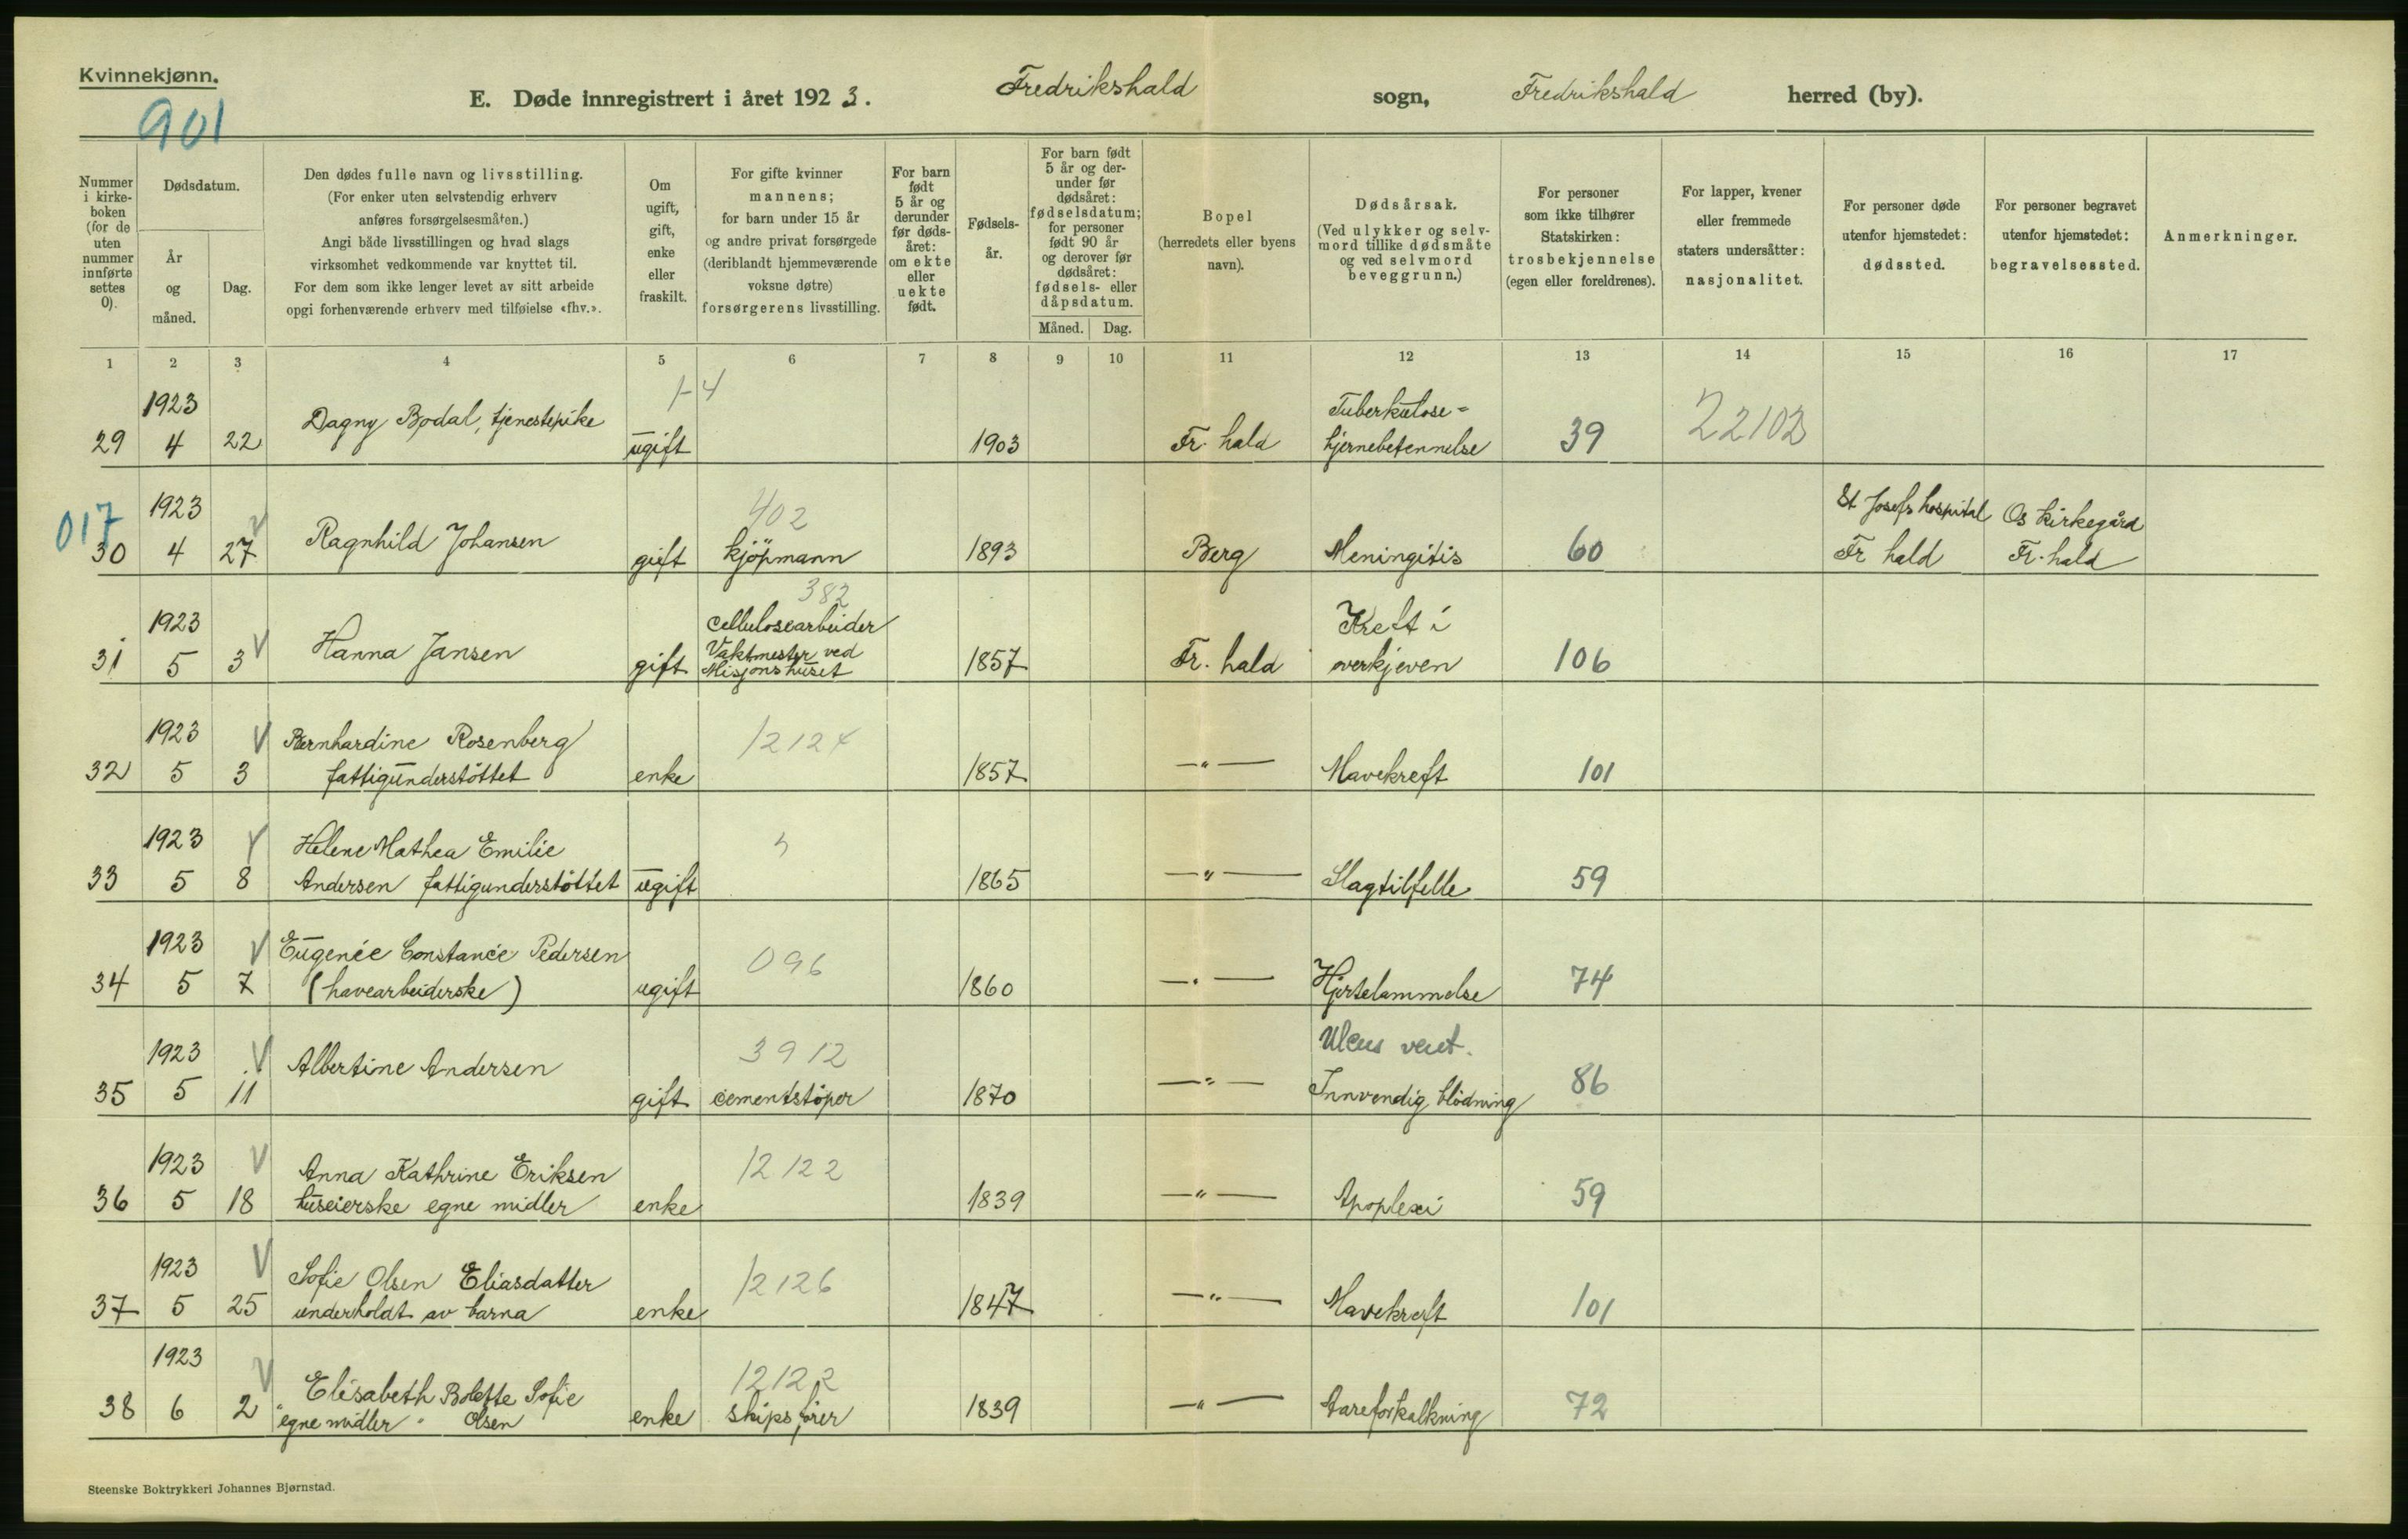 Kvinnekjønn.
901
E. Døde innregistrert i året 1923. Fredrikshald sogn, Fredrikshald herred (by).
Nummer i kirkeboken (for de uten nummer innførte settes 0).
Dødsdatum.
År og måned.
Dag.
Den dødes fulle navn og livsstilling.
(For enker uten selvstendig erhverv
anføres forsørgelsesmåten.)
Angi både livsstillingen og hvad slags
virksomhet vedkommende var knyttet til.
For dem som ikke lenger levet av sitt arbeide
opgi forhenværende erhverv med tilføielse «fhv.».
Om ugift, gift, enke eller fraskilt.
For gifte kvinner
mannens;
for barn under 15 år
og andre privat forsørgede
(deriblandt hjemmeværende
voksne døtre)
forsørgerens livsstilling.
For barn født 5 år og derunder før dødsåret: om ekte eller uekte født.
Fødselsår.
For barn født 5 år og derunder før dødsåret: fødselsdatum; for personer født 90 år og derover før dødsåret: fødsels- eller dåpsdatum.
Måned. Dag.
Bopel
(herredets eller byens
navn).
Dødsårsak.
(Ved ulykker og selvmord tillike dødsmåte
og ved selvmord
beveggrunn.)
For personer
som ikke tilhører
Statskirken:
trosbekjennelse
(egen eller foreldrenes).
For lapper, kvener
eller fremmede
staters undersåtter:
nasjonalitet.
For personer døde
utenfor hjemstedet:
dødssted.
For personer begravet
utenfor hjemstedet:
begravelsessted.
Anmerkninger.
1 2 3 4 5 6 7 8 9 10 11 12 13 14 15 16 17
1923 Dagny Bodal, tjenestepike 1-4 Tuberkulose=
29 4 22 ugift 1903 Fr. hald hjernebetennelse 39 22102
017 1923 V Ragnhild Johansen 402 St Josefs hospital Os kirkegård
30 4 27 gift kjöpmann 1893 Berg Meningitis 60 Fr hald Fr. hald
382
1923 V Hanna Jansen cellulosearbeider Kreft i
31 5 3 gift Vaktmester ved Misjonshuset 1857 Fr. hald overkjeven 106
1923 V Bernhardine Rosenberg 12124
32 5 3 fattigunderstöttet enke 1857 —"— Mavekreft 101
1923 V Helene Mathea Emilie
33 5 8 Andersen fattigunderstöttet ugift 1865 —"— Slagtilfelle 59
1923 V Eugenie Constance Pedersen 096
34 5 7 (havearbeiderske) ugift 1860 —"— Hjertelammelse 74
1923 V Albertine Andersen 3912 Ulcus vent.
35 5 11 gift cementstöper 1870 —"— Innvendig blödning 86
1923 V Anna Kathrine Eriksen 12122
36 5 18 huseierske egne midler enke 1839 —"— Apoplexi 59
1923 V Sofie Olsen Eliasdatter 12126
37 5 25 underholdt av barna enke 1847 —"— Mavekreft 101
1923 V Elisabeth Bolette Sofie 12122
38 6 2 "egne midler" Olsen enke skipsförer 1839 —"— Aareforkalkning 72
Steenske Boktrykkeri Johannes Bjørnstad.